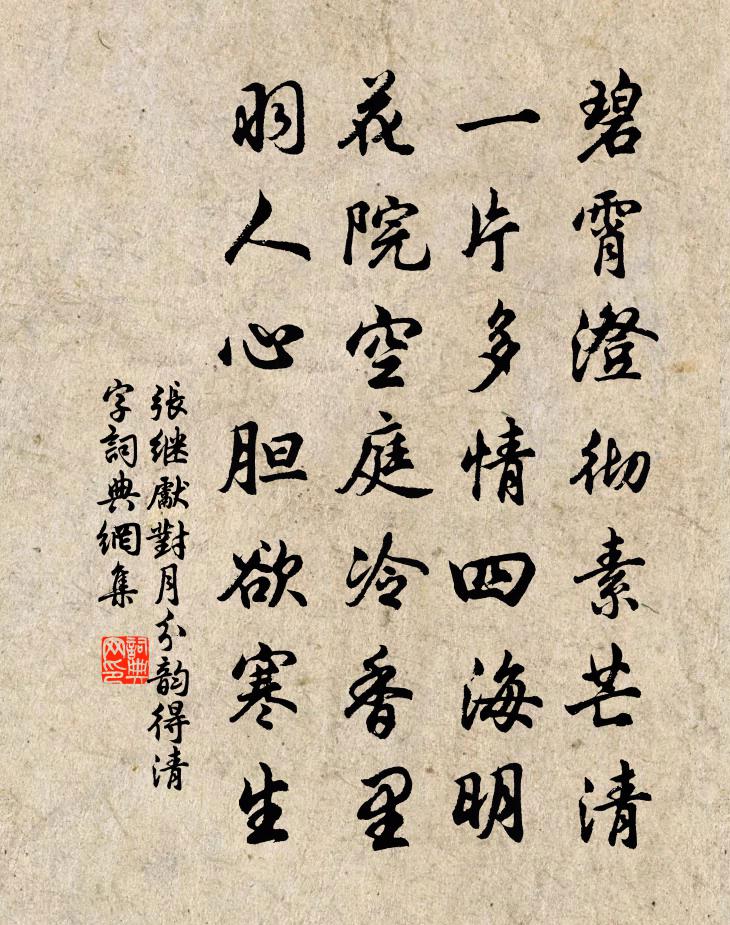 碧霄澄彻素芒清
一片多情四海明
花院空庭冷香里
羽人心胆欲寒生
張继獻對月分韵得清
字詞典網集
詞典网印